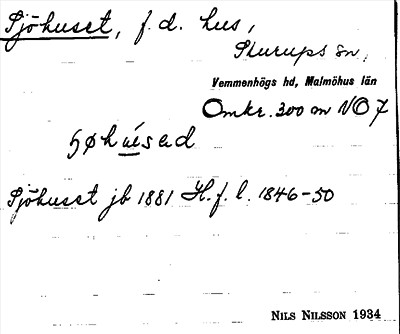 Sjöhuset, f.d. hus,
Skurups sn,
Vemmenhögs hd, Malmöhus län
Omkr. 300 m NO 7
Sjöhuset jb 1881 H.f.l. 1846-50
NILS NILSSON 1934